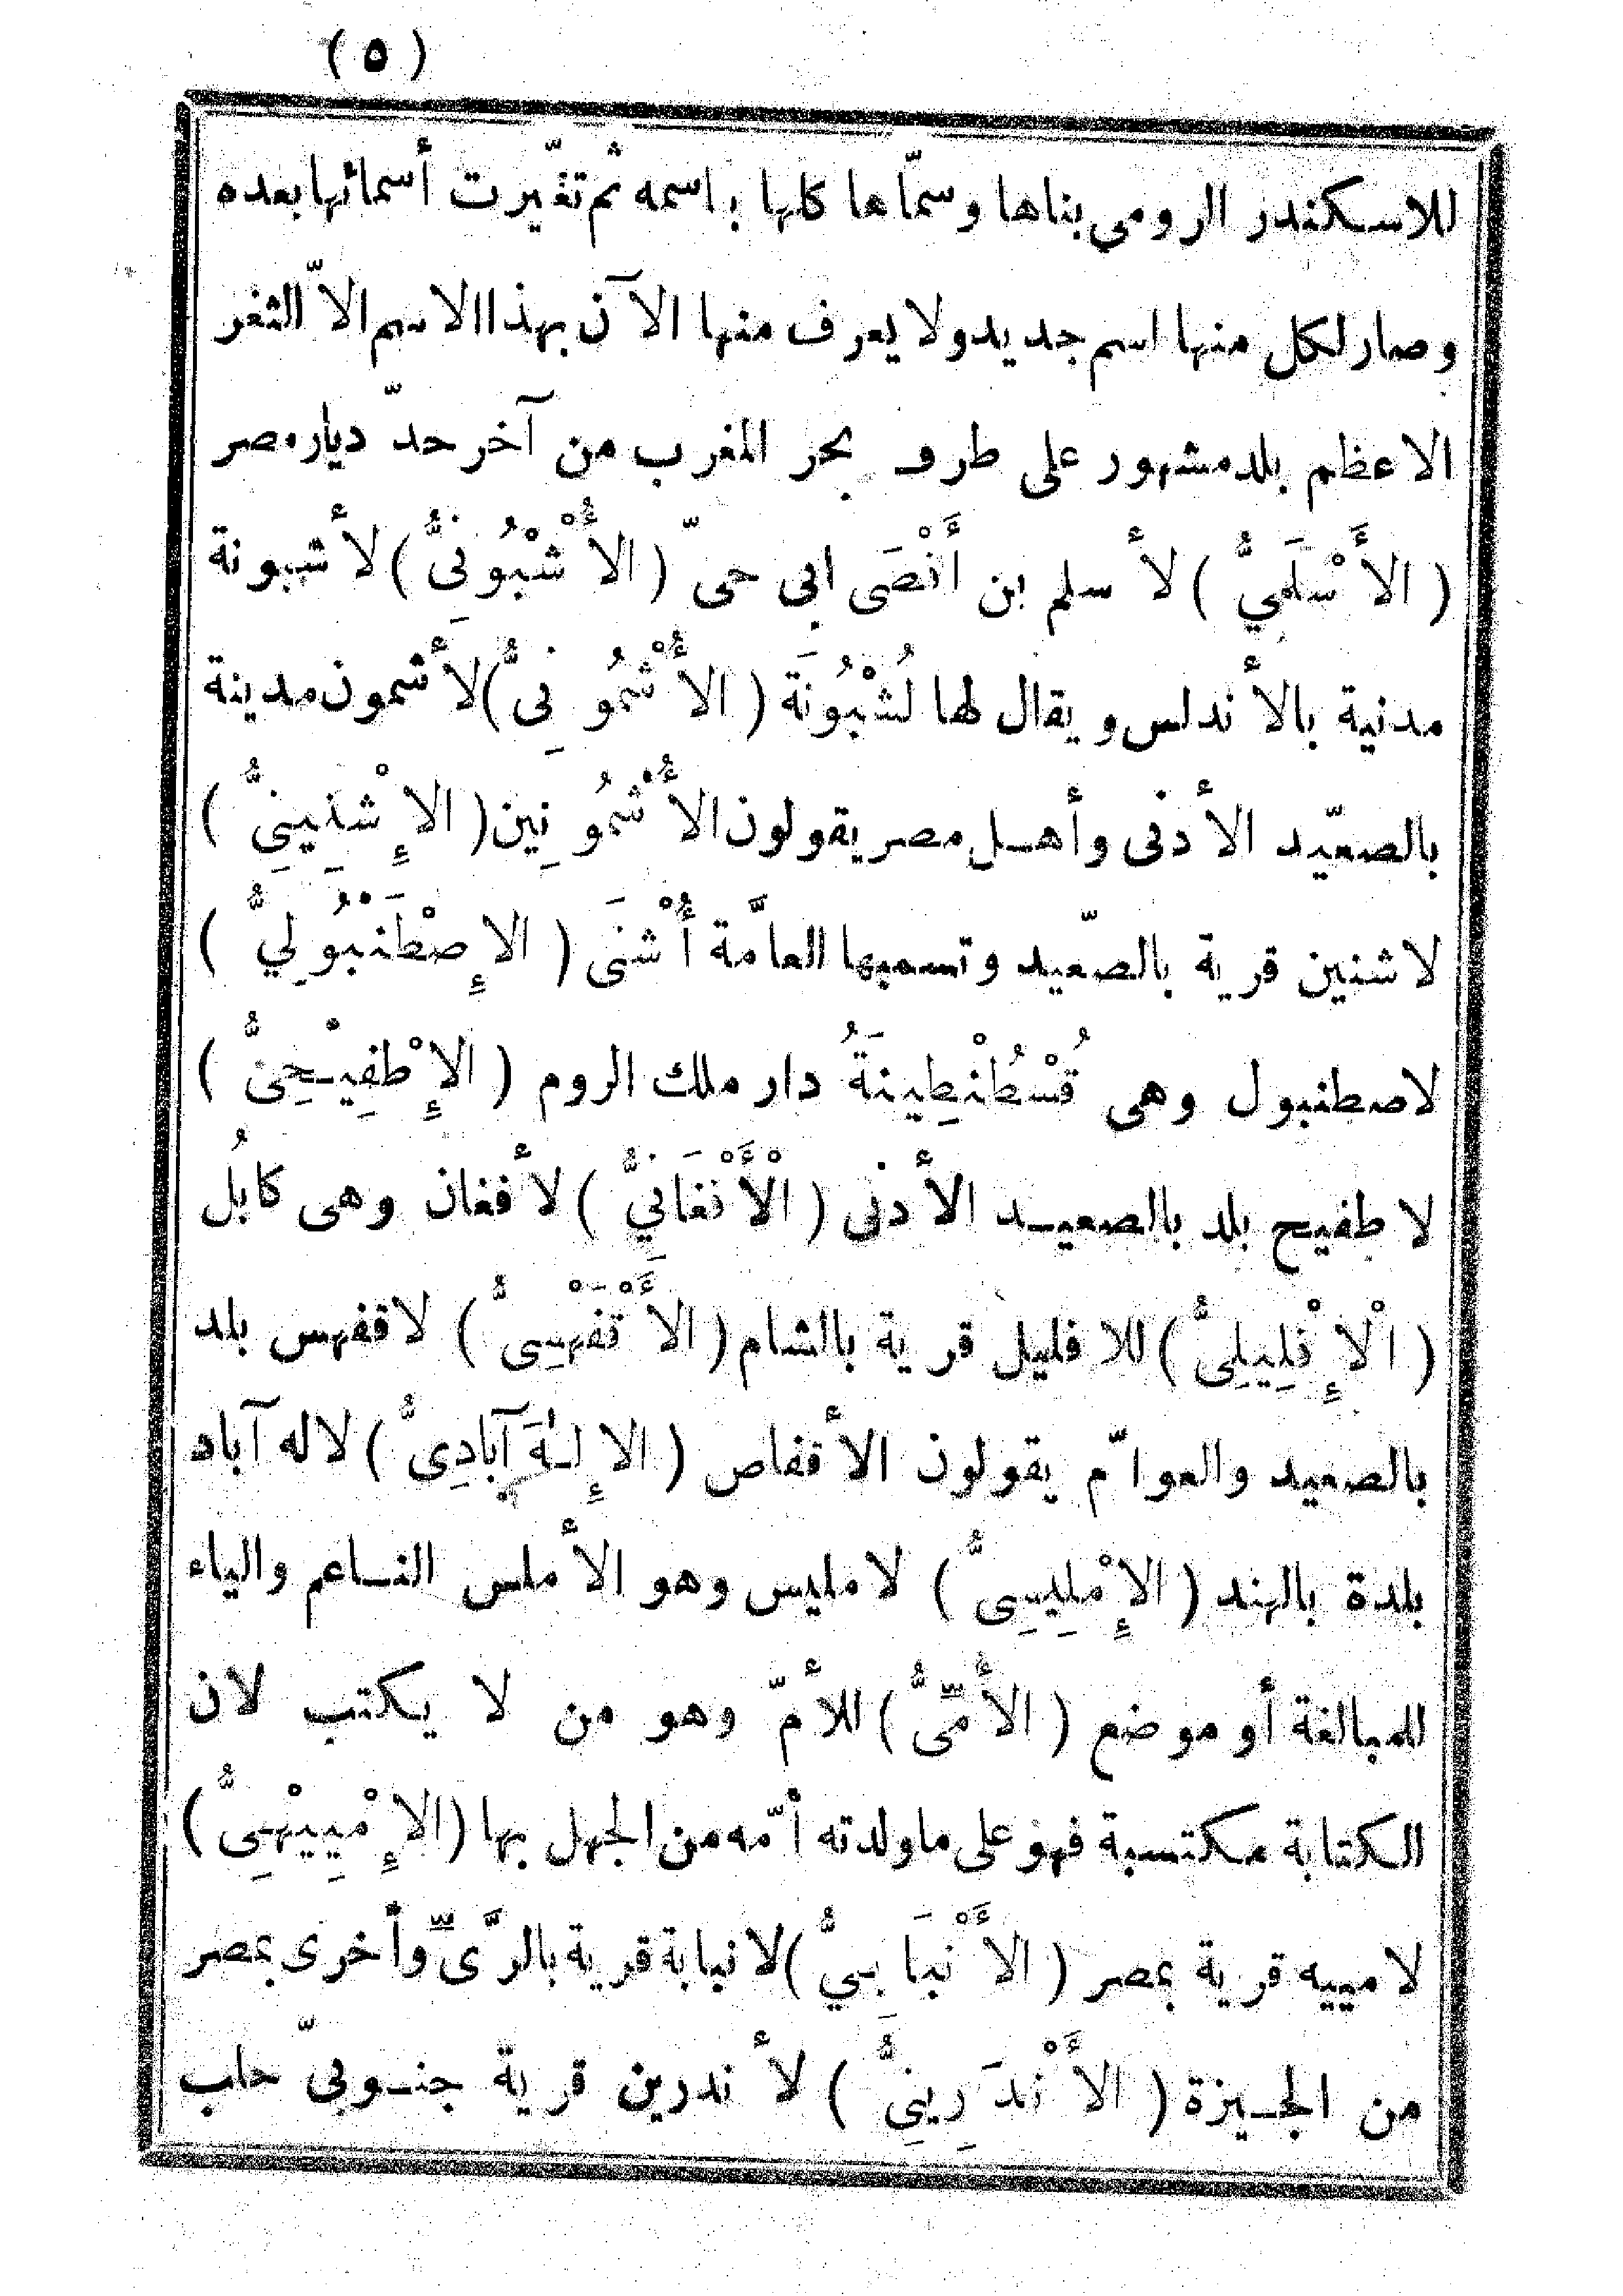 (٥)
للاسكندر الرومي بناها وسمّاها كلها باسمه ثم تغّيرت أسمائها بعده
وصار لكل منها اسم جديد ولا يعرف منها الآن بهذا الاسم الاّ الثغر
الاعظم بلد مشهور على طرف بحر المغرب من آخر حدّ ديار مصر
(الأَسْلَمِيُّ) لأسلم بن أَفْصَى ابى حىّ (الأُشْبُونِىُّ) لأشبونة
مدنية بالأندلس ويقال لها لُشْبُونَة (الأُشْمُونِىُّ) لأشمون مدينة
بالصعّيد الأدنى وأهل مصر يقولون الأُشْمُونِين (الإِشْنِينِىُّ)
لاشنين قرية بالصّعيد وتسميها العامَّة أُشْنَى (الإِصْطَنْبُولِيُّ)
لاصطنبول وهى قُسْطُنْطِينَةُ دار ملك الروم (الإِطْفِيْحِىُّ)
لاطفيح بلد بالصعيد الأدنى (الْأَفْغَانِيُّ) لأفغان وهى كابُل
(الْإِفْلِيلِىُّ) للافليل قرية بالشام (الأَقْفَهْسِىُّ) لاقفهس بلد
بالصعيد والعوامّ يقولون الأقفاص (الإِلَهَ آبادِىُّ) لاله آباد
بلدة بالهند (الإِمْلِيسِىُّ) لامليس وهو الأملس الناعم والياء
للمبالغة أو موضع (الأُمِّىُّ) للأمّ وهو من لا يكتب لان
الكتابة مكتسبة فهو على ما ولدته أمّه من الجهل بها (الإِمْيِيْهِىُّ)
لامييه قرية بمصر (الأَنْبَابِيُّ) لانبابة قرية بالرَّىِّ وأخرى بمصر
من الجيزة (الأَنْدَرِينِىُّ) لأندرين قرية جنوبىّ حلب